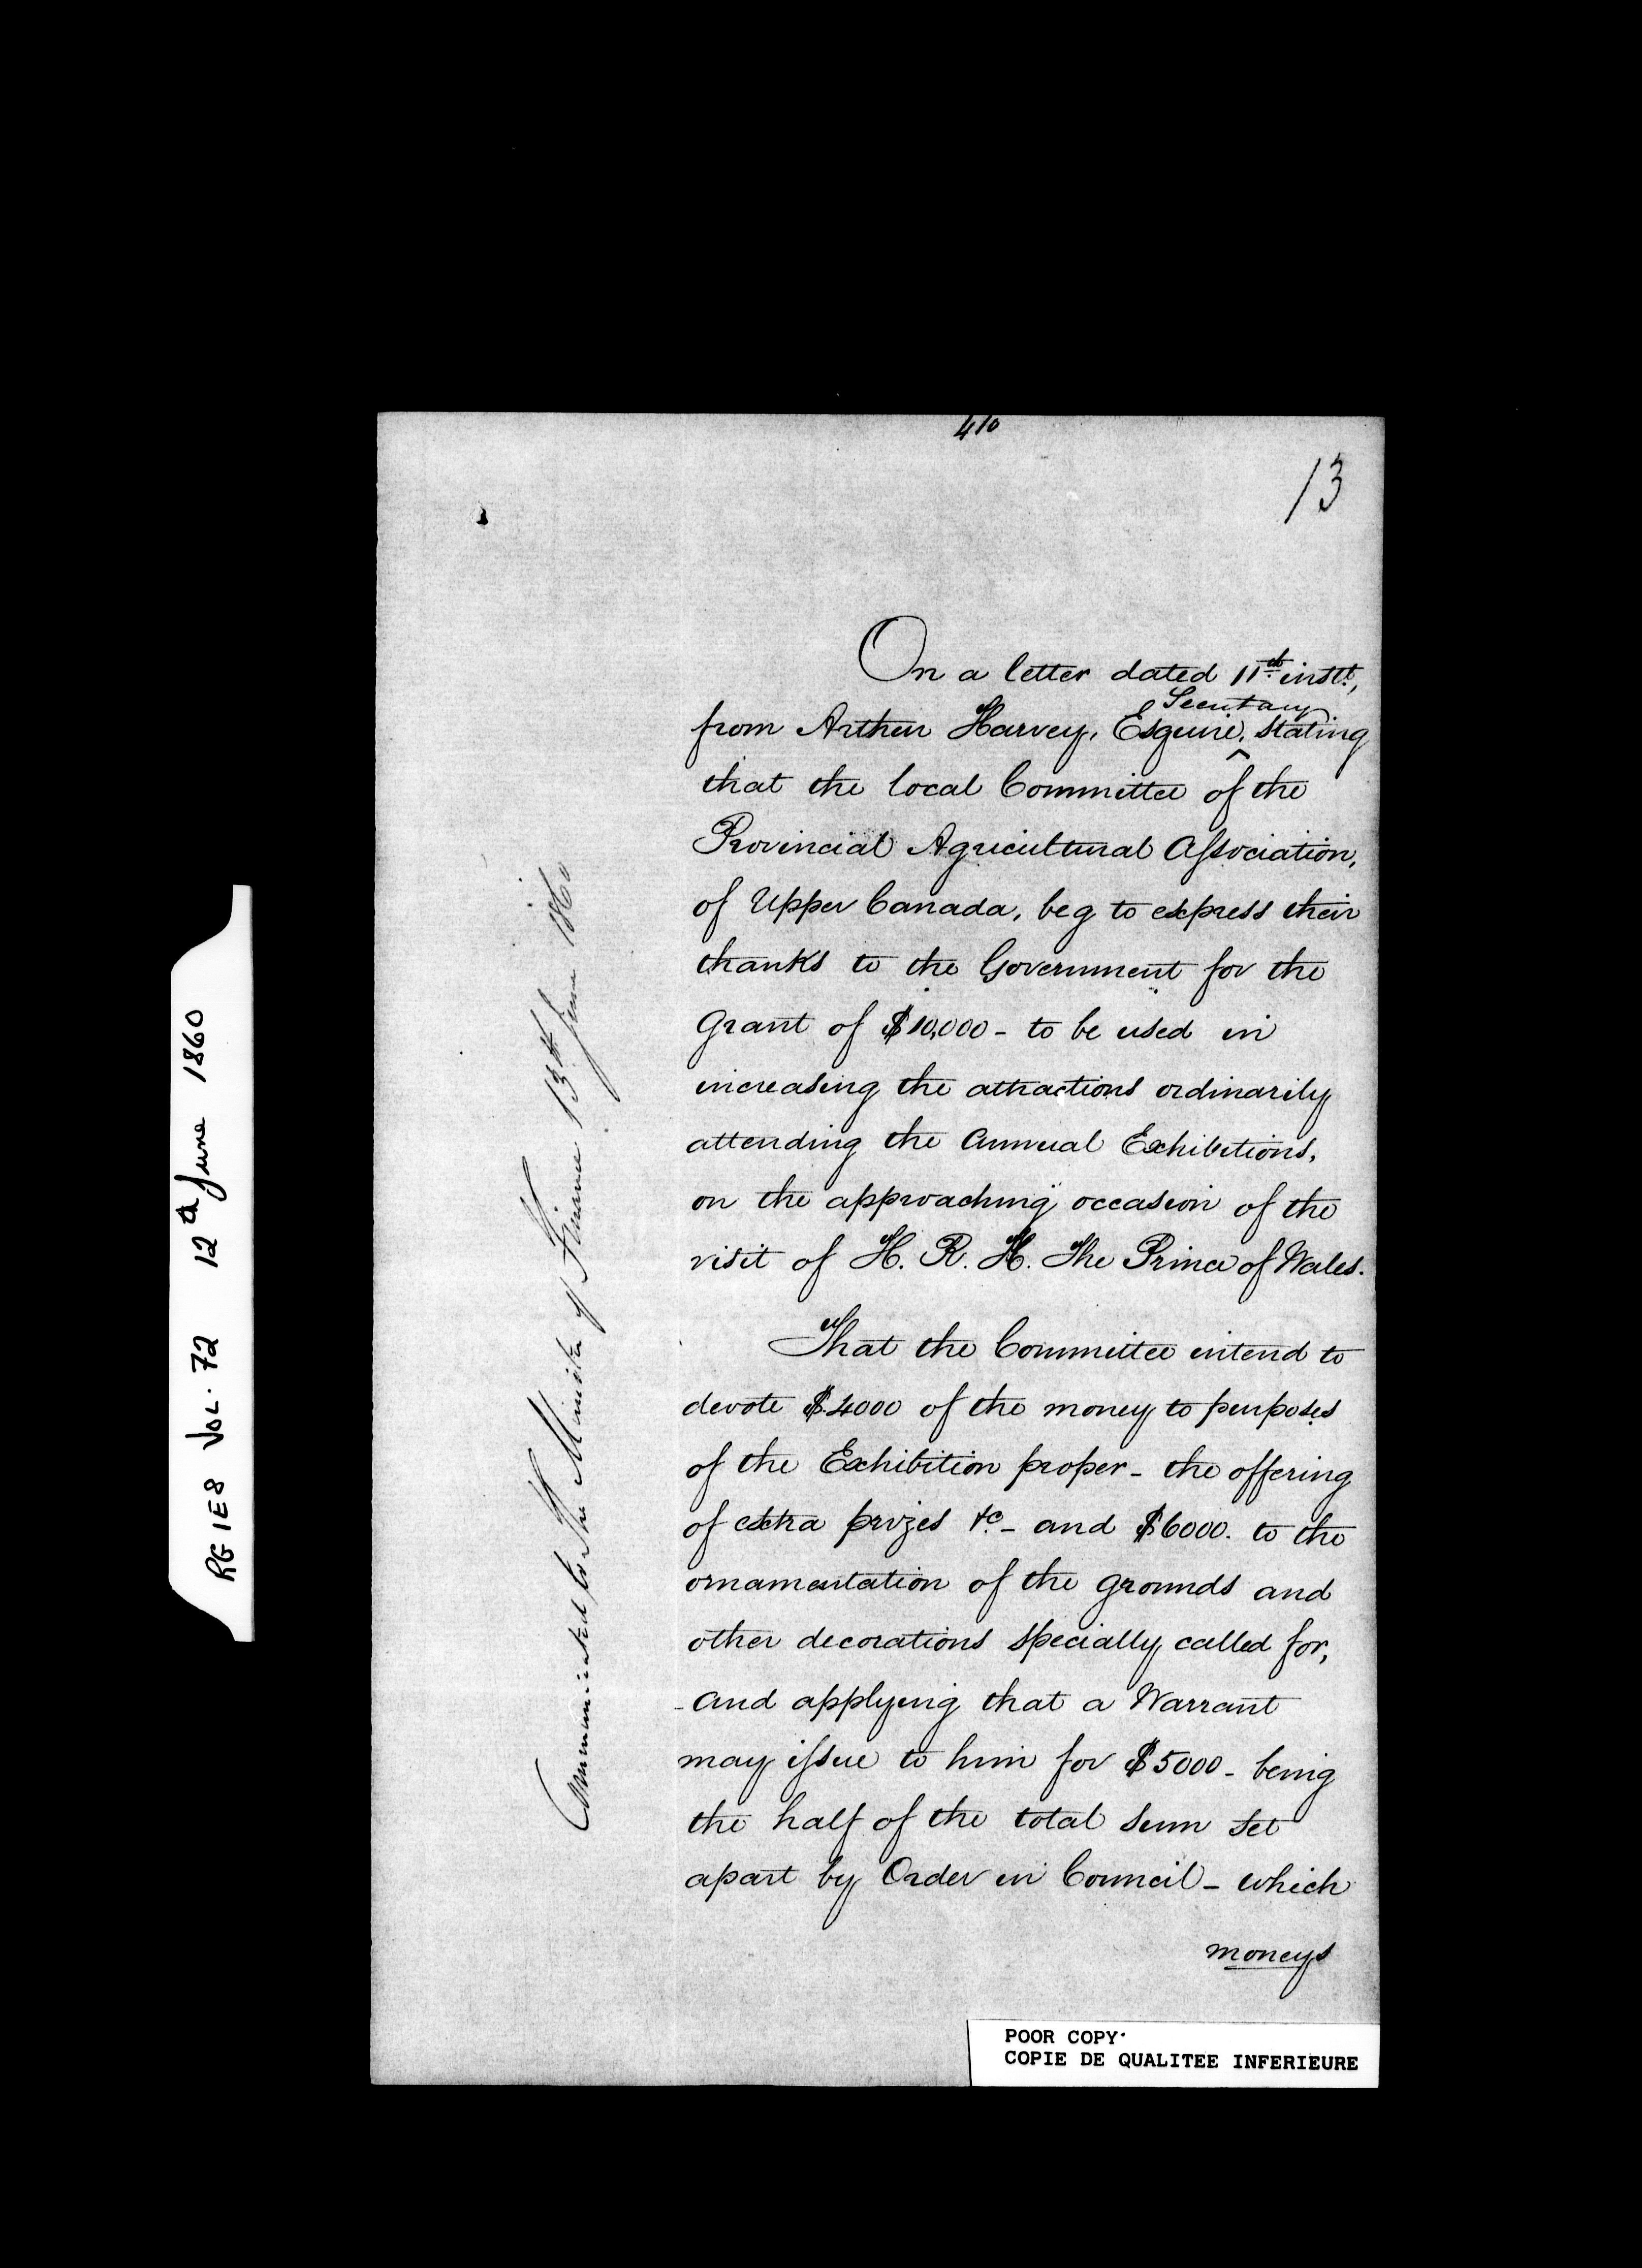 410
13
On a letter dated 11th inst.,
Secretary
from Arthur Harvey, Esquire, ^ stating
that the local Committee of the
Provincial Agricultural Association,
of Upper Canada, beg to express their
thanks to the Government for the
Grant of $10,000 - to be used in
increasing the attractions ordinarily
attending the Annual Exhibitions,
on the approaching occasion of the
visit of H. R. H. The Prince of Wales.
That the Committee intend to
devote $4000 of the money to purposes
of the Exhibition proper - the offering
of extra prizes &c - and $6000. to the
ornamentation of the grounds and
other decorations specially called for,
- and applying that a Warrant
may issue to him for $5000 - being
the half of the total sum set
apart by Order in Council - which
moneys
Communicated to The Minister of Finance 13th June 1860
RG 1E8 VOL. 72 12th June 1860
POOR COPY
COPIE DE QUALITEE INFERIEURE